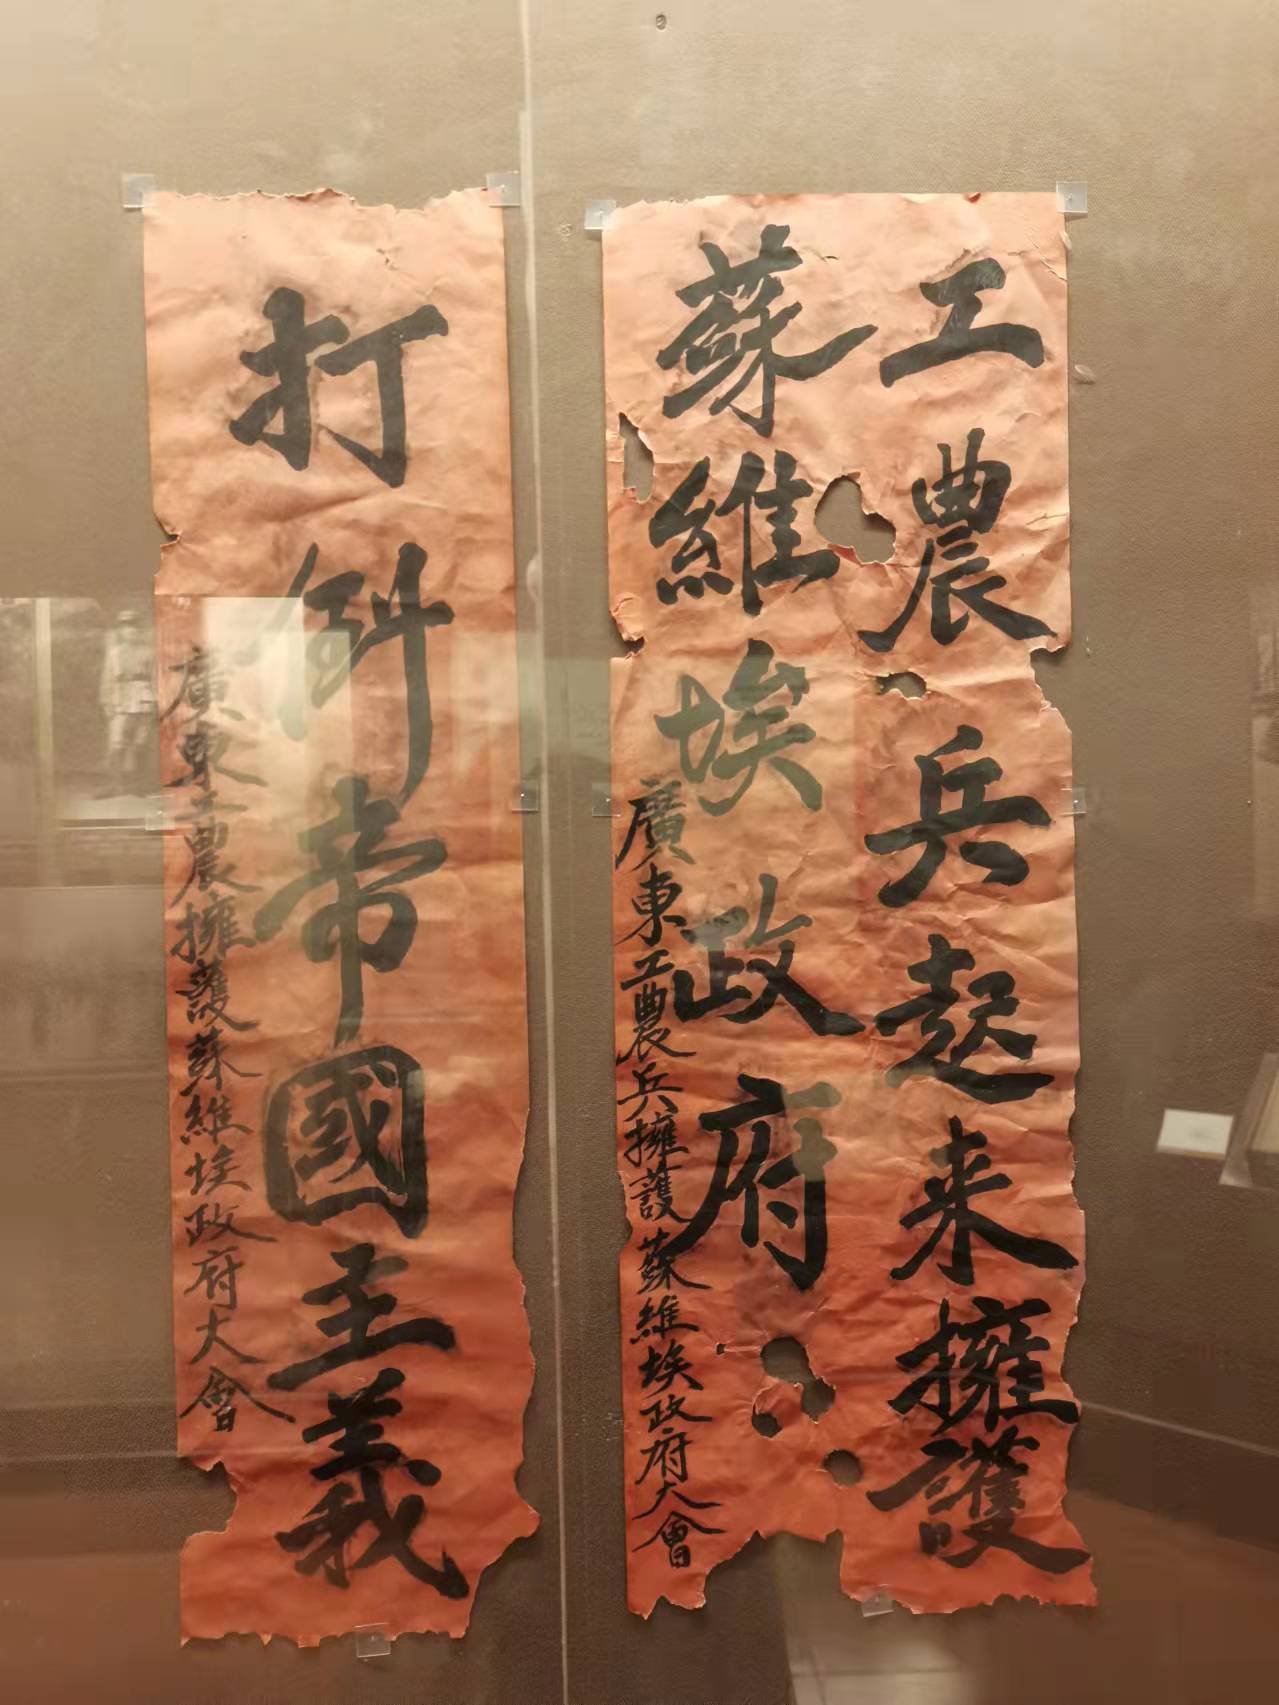 工農兵起来擁護
蘇維埃政府
廣東工農兵擁護蘇維埃政府大會
打倒帝國主義
廣東工農擁護蘇維埃政府大會